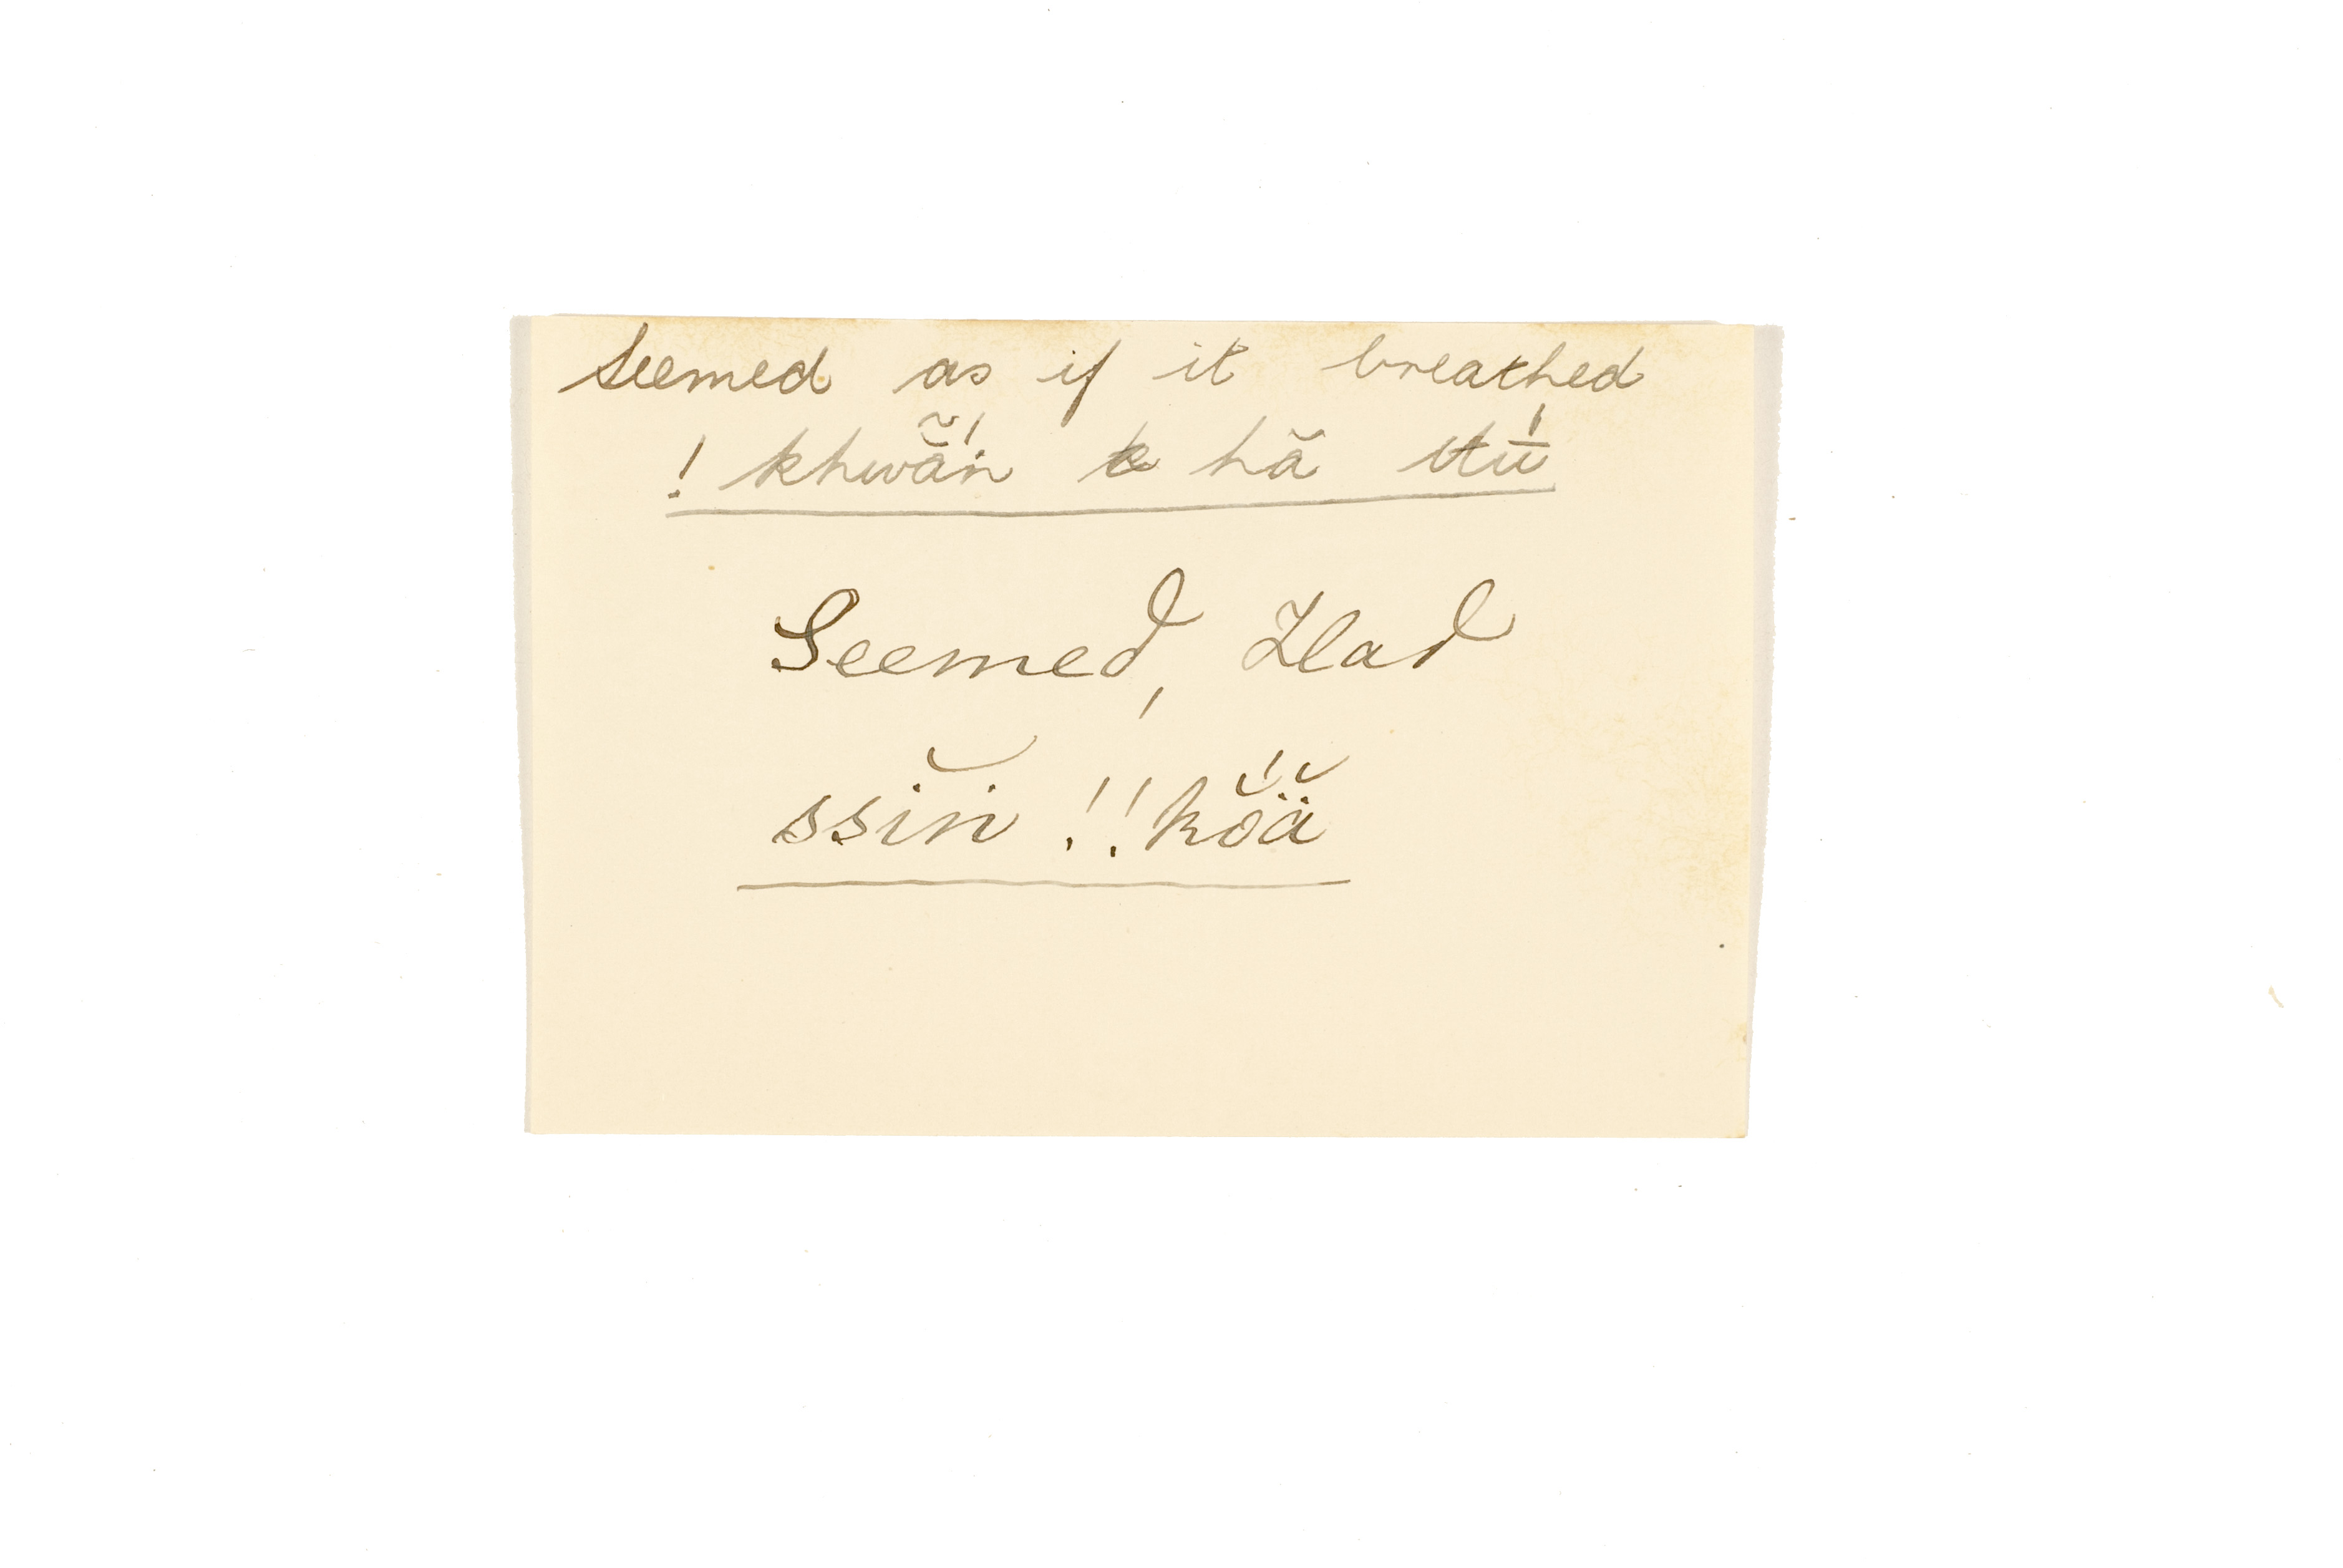 Seemed as if it breathed
! khwä̃́n k hă ttū́
Seemed, Had
ssĭn !! kŏ́ä̆